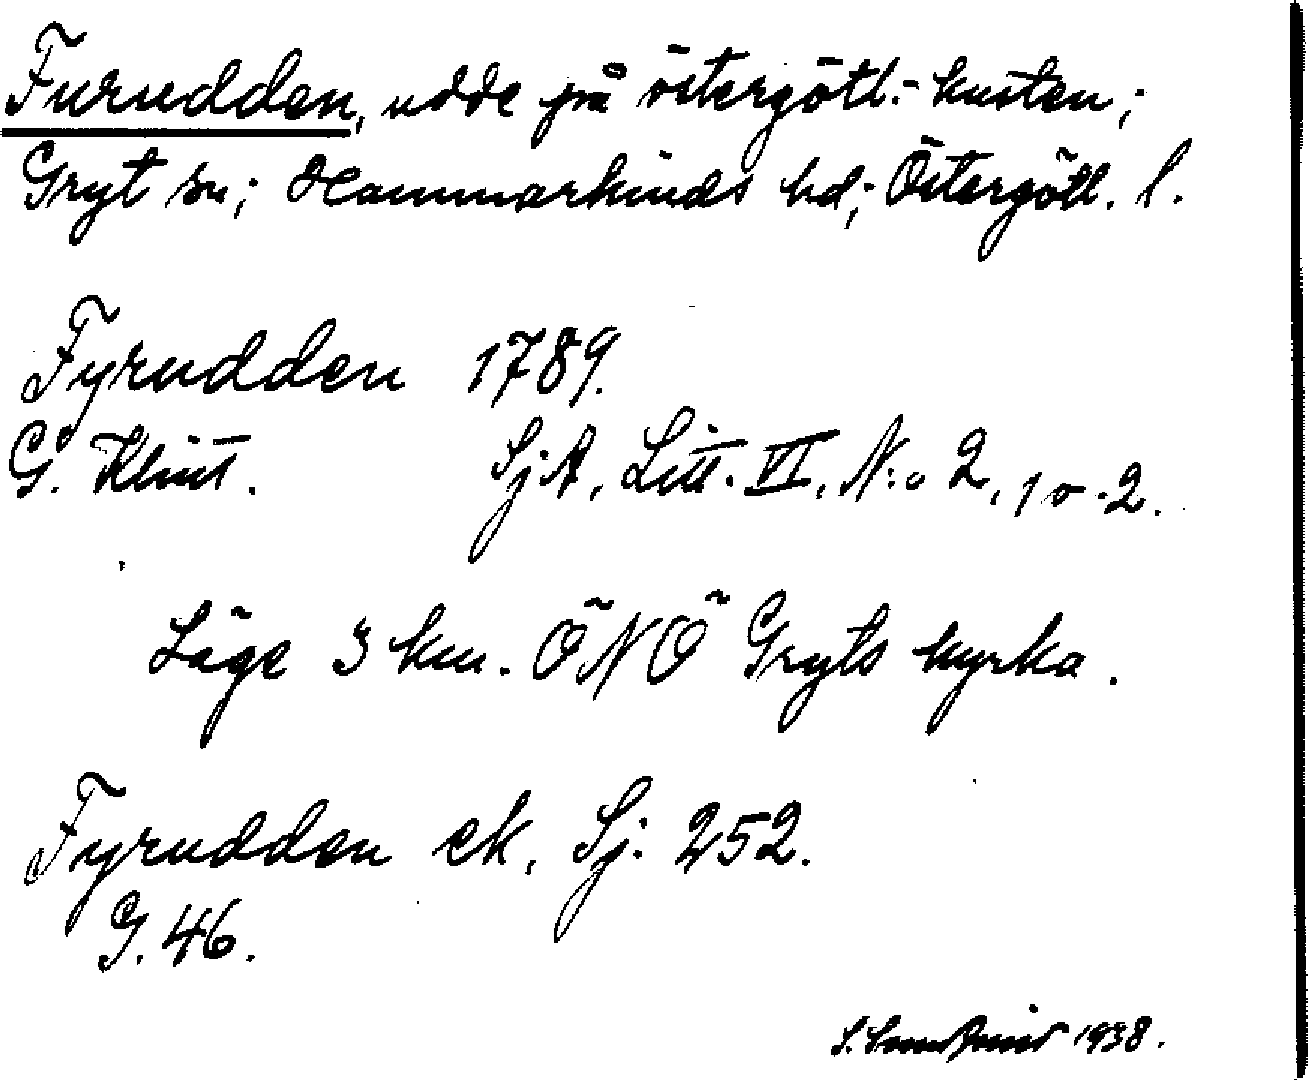 Furudden, udde på östergötl.-kusten;
Gryt sn; Hammarkinds hd; Östergötl. l.
Fyrudden 1789.
G. Klint. SjA, Litt. VI, N:o 2, 1 o. 2.
Läge 3 km. ÖNÖ Gryts kyrka.
Fyrudden ek. Sj: 252.
G. 46.
1938.